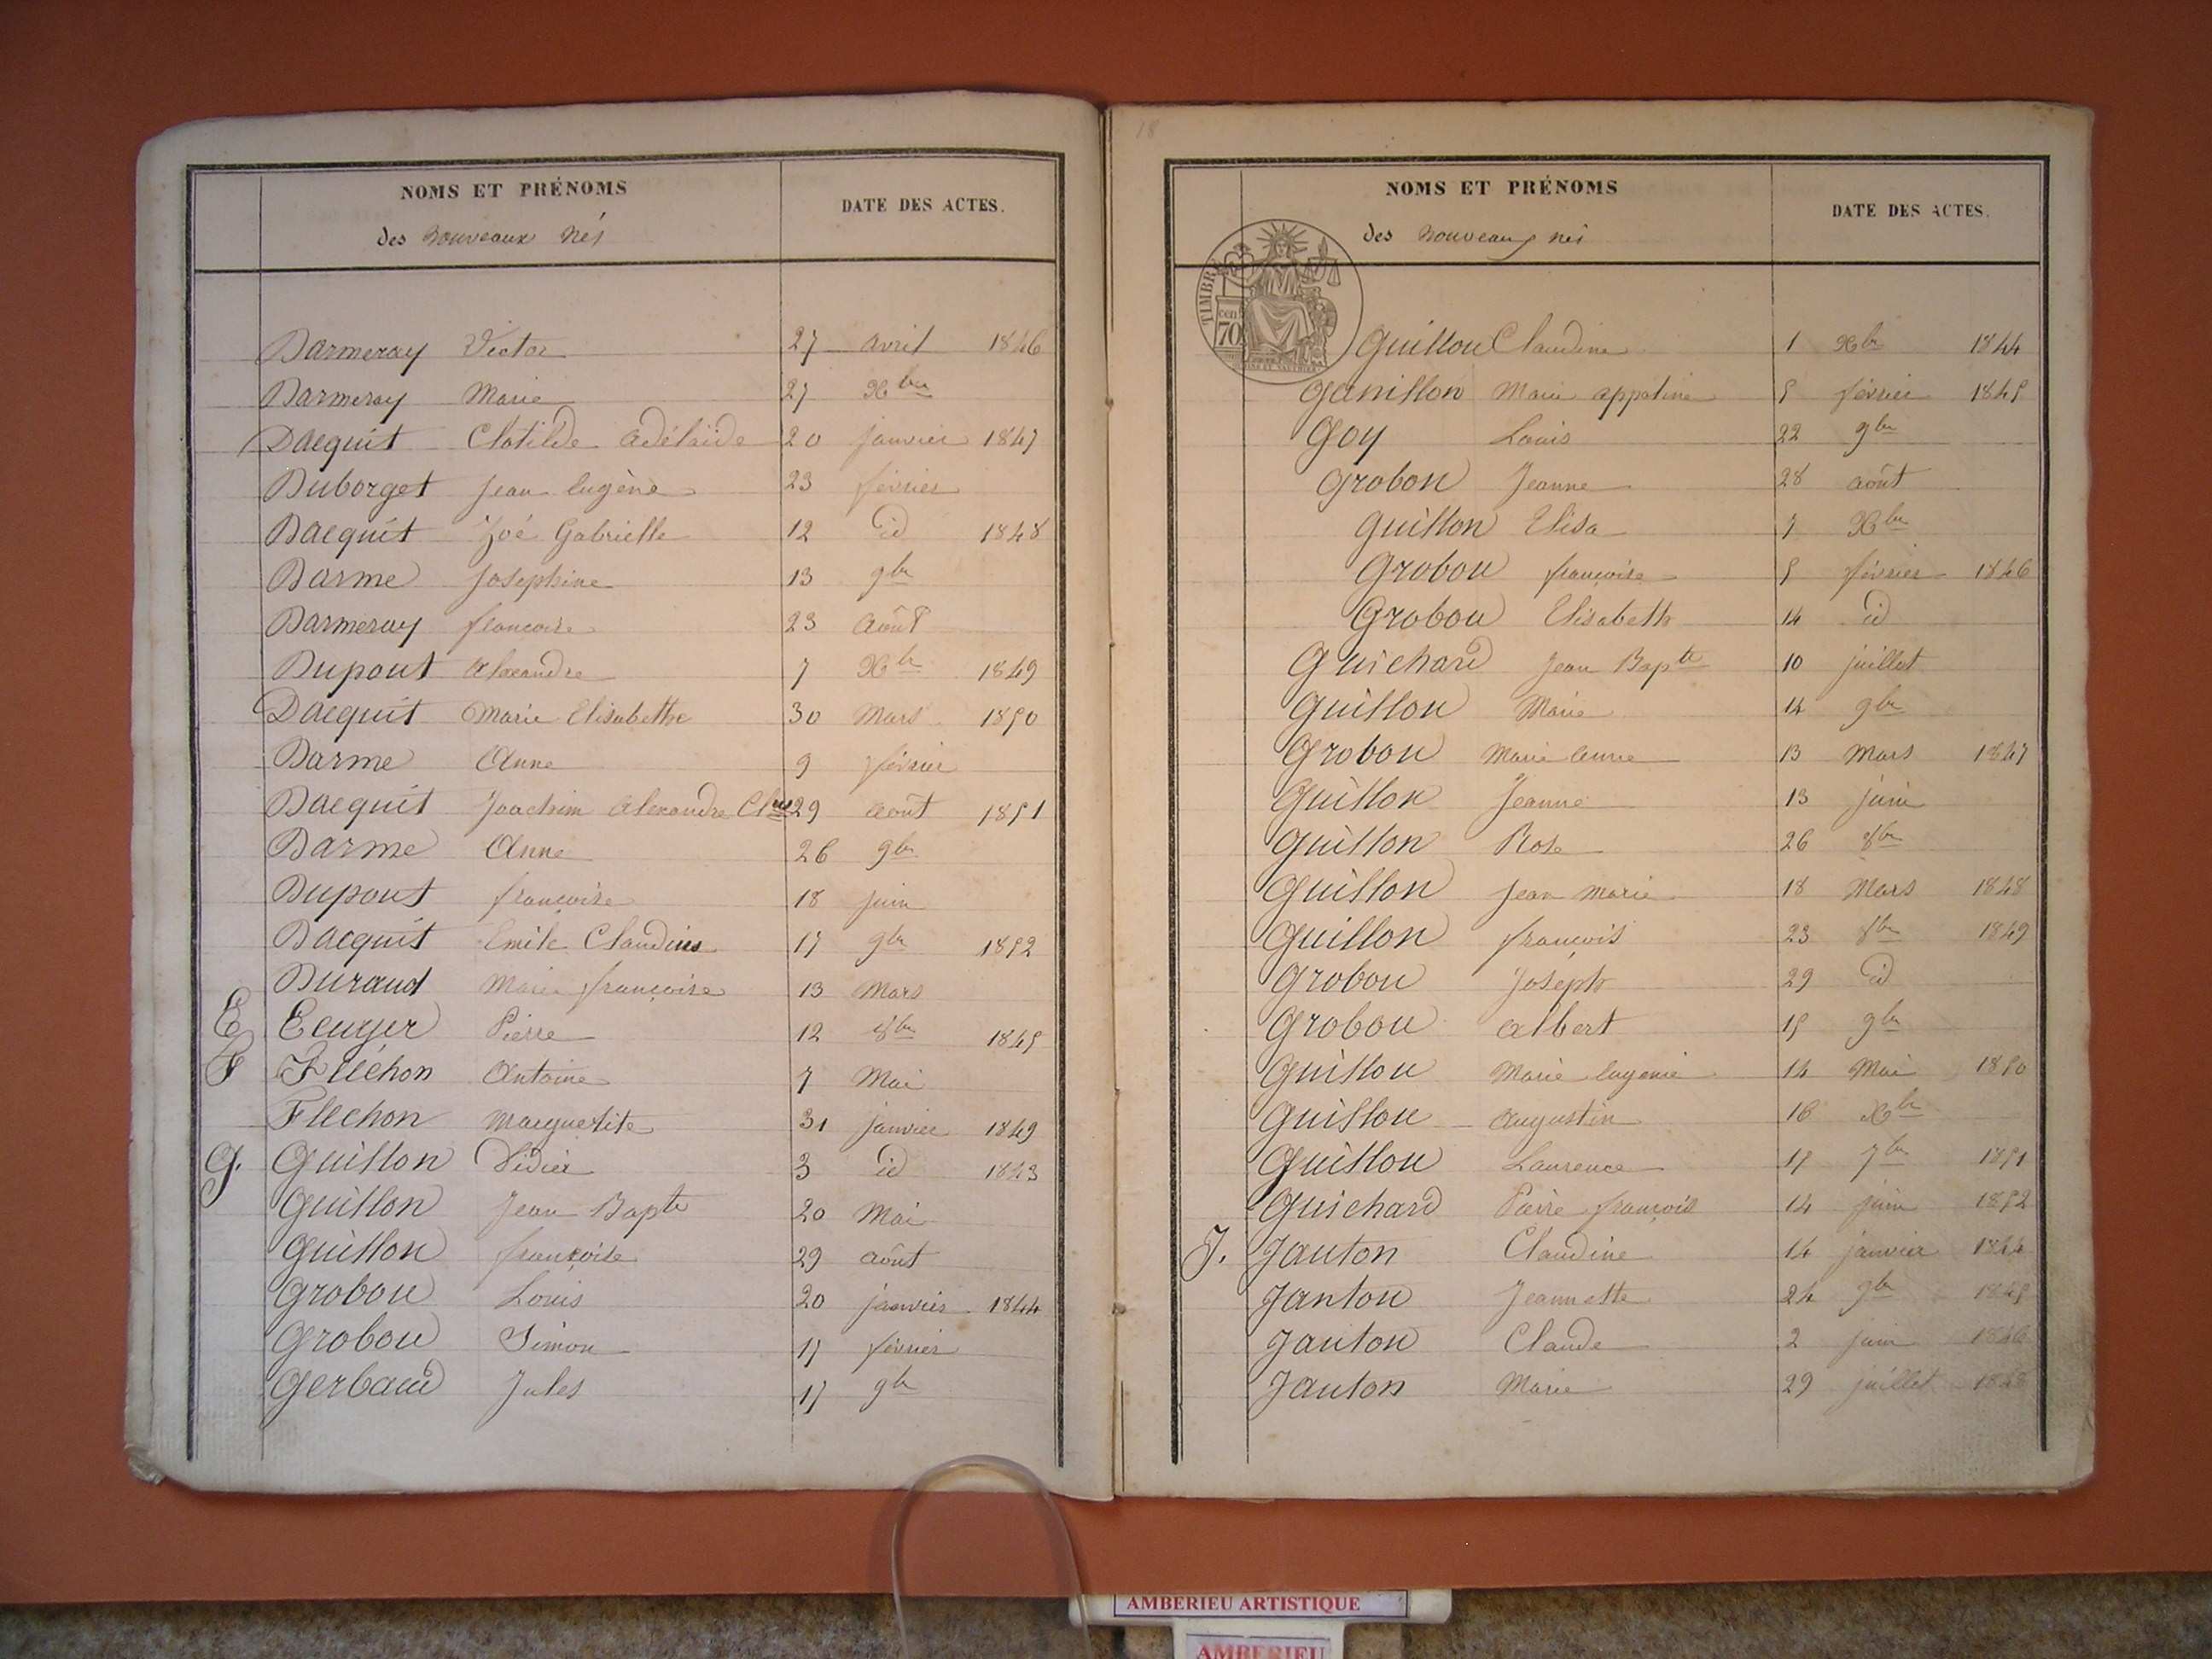 NOMS ET PRÉNOMS
des nouveaux nés
DATE DES ACTES.
Darmeray Victor 27 avril 1846
Darmeray Marie 27 Xbre
Dacquit Clotilde Adélaïde 20 janvier 1847
Duborget Jean Eugène 23 février
Dacquit Zoé Gabrielle 12 id 1848
Darme Joséphine 13 9bre
Darmeray françoise 23 Août
Dupont Alexandre 7 Xbre 1849
Dacquit Marie Elisabethe 30 Mars 1850
Darme Anne 9 février
Dacquit Joachim Alexandre 29 août 1851
Darme Anne 26 9bre
Dupont françoise 18 juin
Dacquit Emile Claudius 17 9bre 1852
Durand Marie françoise 13 Mars
E Ecuyer Pierre 12 8bre 1845
F Fléchon Antoine 7 Mai
Flechon Marguerite 31 janvier 1849
G. Guillon Didier 3 id 1843
Guillon Jean Bapte 20 Mai
Guillon françoise 29 août
Grobon Louis 20 janvier 1844
Grobon Simon 17 février
Gerbaud Jules 17 9bre
18
NOMS ET PRÉNOMS
des nouveaux nés
DATE DES ACTES.
TIMBRE
70 cen
Guillon Claudine 1 Xbre 1844
Ganillon Marie appoline 5 février 1845
Goy Louis 22 9bre
Grobon Jeanne 28 août
Guillon Elisa 7 Xbre
Grobon françoise 5 février 1846
Grobon Elisabeth 14 id
Guichard Jean Bapte 10 juillet
Guillon Marie 14 9bre
Grobon Marie Anne 13 Mars 1847
Guillon Jeanne 13 juin
Guillon Rose 26 8bre
Guillon Jean Marie 18 Mars 1848
Guillon françois 23 8bre 1849
Grobon Joseph 29 id
Grobon Albert 15 9bre
Guillon Marie Eugenie 14 Mai 1850
Guillon Augustin 16 Xbre
Guillon Laurence 15 7bre 1851
Guichard Pierre françois 14 juin 1852
J. Janton Claudine 14 janvier 1844
Janton Jeannette 24 9bre 1845
Janton Claude 2 juin 1846
Janton Marie 29 juillet 1848
AMBERIEU ARTISTIQUE
AMBERIEU